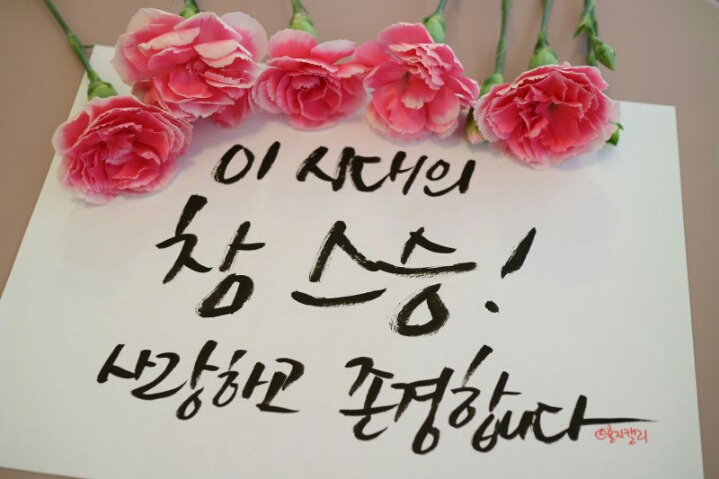 이 시대의
참 스승!
사랑하고 존경합니다